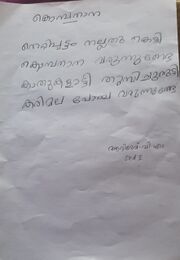 കൊമ്പനാന
നെറ്റിപ്പട്ടം നല്ലതു കെട്ടി
കൊമ്പനാന വരുന്നുണ്ടേ
കാതുകളാട്ടി തുമ്പിച്ചുരുട്ടി
കരിമല പോലെ വരുന്നുണ്ടേ
വി എം